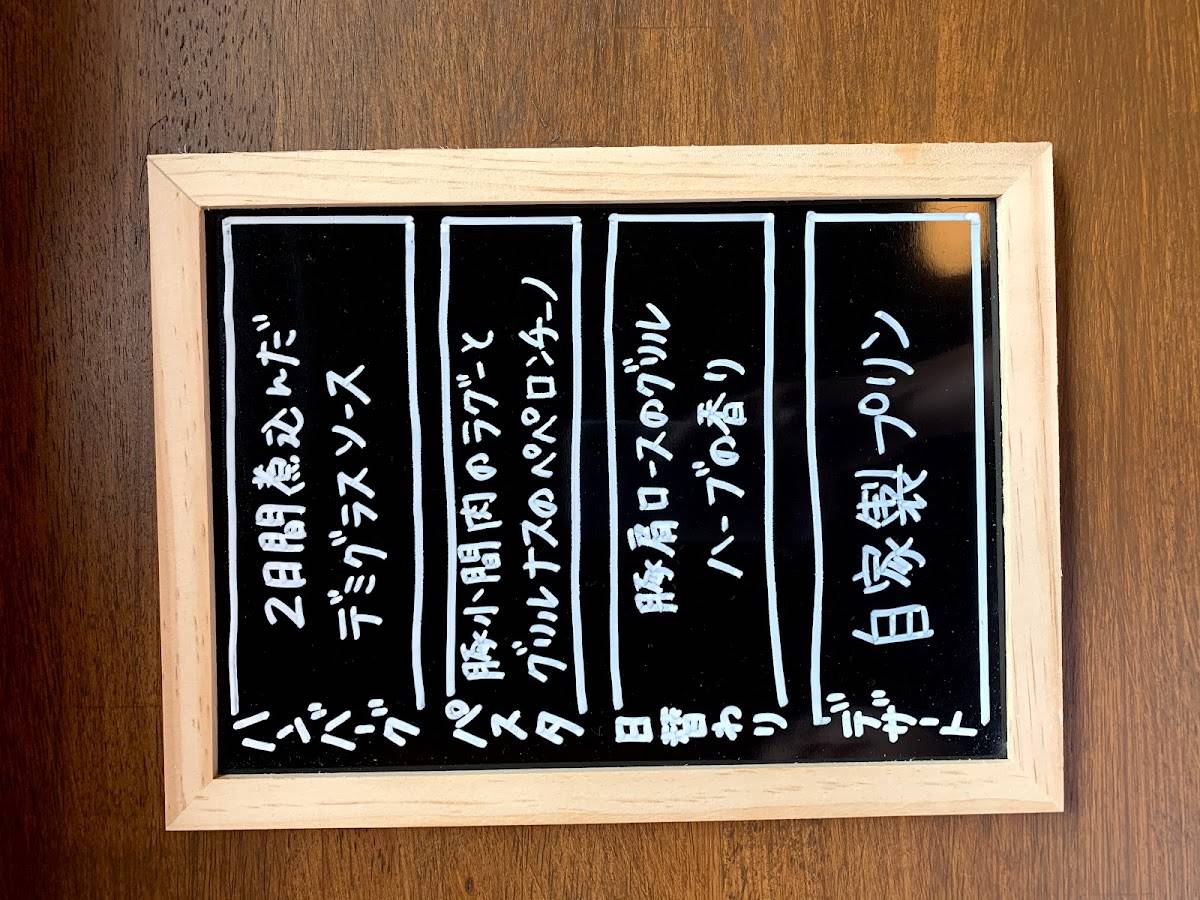 ハンバーグ
2日間煮込んだ
デミグラスソース
パスタ
豚小間肉のラグーと
グリルナスのペペロンチーノ
日替わり
豚肩ロースのグリル
ハーブの香り
デザート
自家製プリン